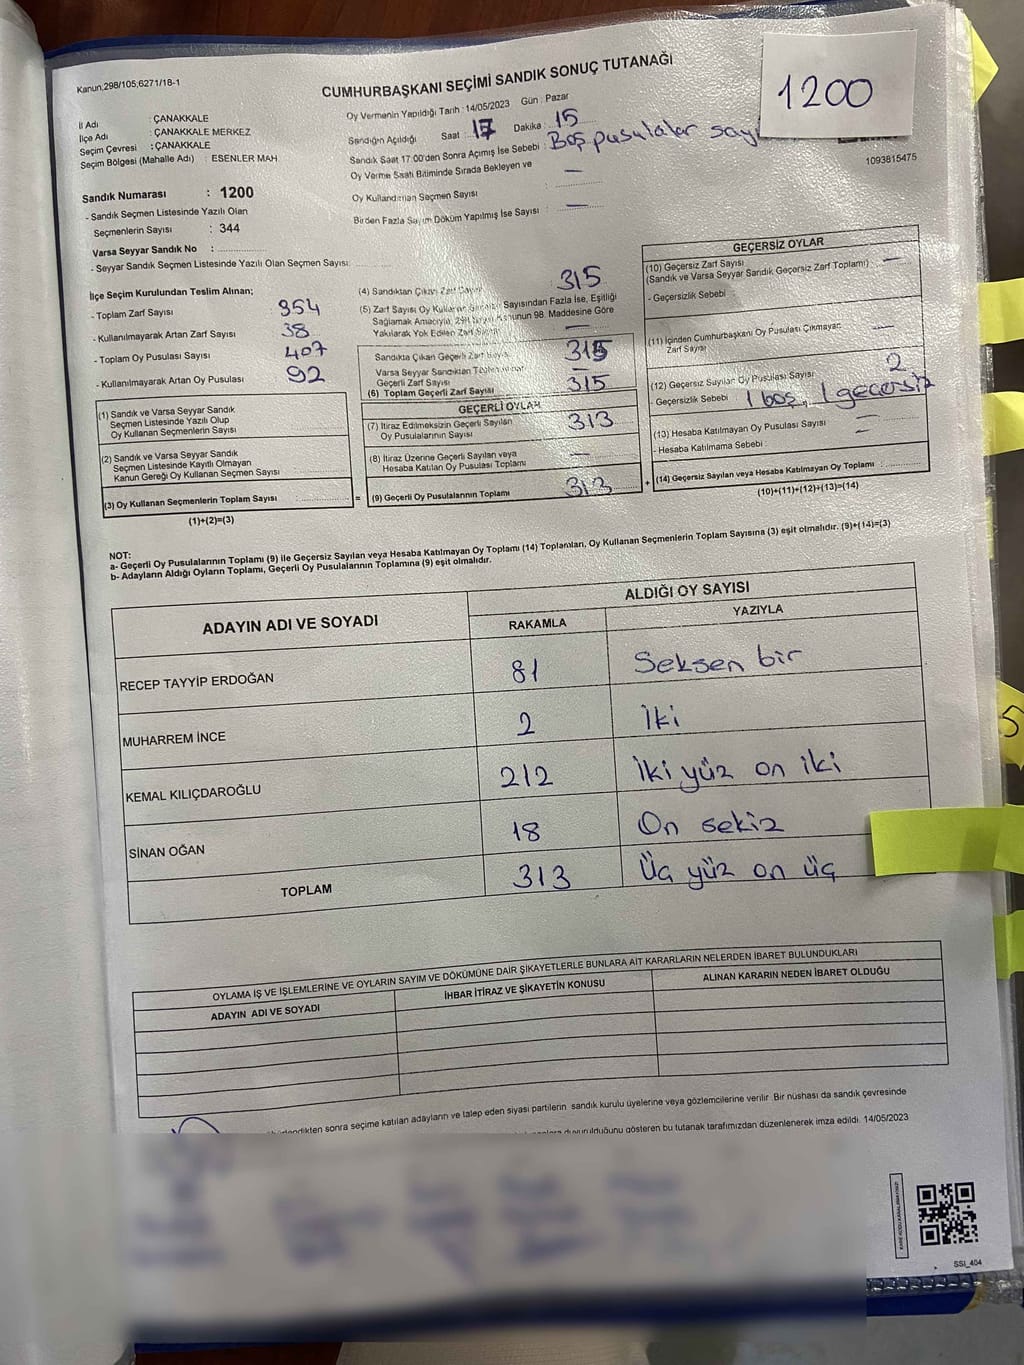 1200
Kanun;298/105;6271/18-1
CUMHURBAŞKANI SEÇİMİ SANDIK SONUÇ TUTANAĞI
İl Adı : ÇANAKKALE
İlçe Adı : ÇANAKKALE MERKEZ
Seçim Çevresi : ÇANAKKALE
Seçim Bölgesi (Mahalle Adı) : ESENLER MAH.
Oy Vermenin Yapıldığı Tarih : 14/05/2023 Gün : Pazar
Sandığın Açıldığı Saat : 17 Dakika : 15
Sandık Saat 17:00'den Sonra Açılmış İse Sebebi : Boş pusulalar
Oy Verme Saati Bitiminde Sırada Bekleyen ve
Oy Kullandırılan Seçmen Sayısı : —
Birden Fazla Sayım Döküm Yapılmış İse Sayısı : —
1093815475
Sandık Numarası : 1200
- Sandık Seçmen Listesinde Yazılı Olan
Seçmenlerin Sayısı : 344
Varsa Seyyar Sandık No :
- Seyyar Sandık Seçmen Listesinde Yazılı Olan Seçmen Sayısı:
İlçe Seçim Kurulundan Teslim Alınan;
- Toplam Zarf Sayısı 354
- Kullanılmayarak Artan Zarf Sayısı 38
- Toplam Oy Pusulası Sayısı 407
- Kullanılmayarak Artan Oy Pusulası 92
(1) Sandık ve Varsa Seyyar Sandık
Seçmen Listesinde Yazılı Olup
Oy Kullanan Seçmenlerin Sayısı
(2) Sandık ve Varsa Seyyar Sandık
Seçmen Listesinde Kayıtlı Olmayan
Kanun Gereği Oy Kullanan Seçmen Sayısı
(3) Oy Kullanan Seçmenlerin Toplam Sayısı :
(1)+(2)=(3)
(4) Sandıktan Çıkan Zarf Sayısı 315
(5) Zarf Sayısı Oy Kullanan Sayısından Fazla İse, Eşitliği
Sağlamak Amacıyla, 298 Kanunun 98. Maddesine Göre
Yakılarak Yok Edilen Zarf —
Sandıkta Çıkan Geçerli Zarf Sayısı 315
Varsa Seyyar Sandıktan —
Geçerli Zarf Sayısı
(6) Toplam Geçerli Zarf Sayısı 315
GEÇERLİ OYLAR
(7) İtiraz Edilmeksizin Geçerli Sayılan
Oy Pusulalarının Sayısı 313
(8) İtiraz Üzerine Geçerli Sayılan veya
Hesaba Katılan Oy Pusulası Toplamı —
= (9) Geçerli Oy Pusulalarının Toplamı 313
GEÇERSİZ OYLAR
(10) Geçersiz Zarf Sayısı
(Sandık ve Varsa Seyyar Sandık Geçersiz Zarf Toplamı) : —
- Geçersizlik Sebebi
(11) İçinden Cumhurbaşkanı Oy Pusulası Çıkmayan
Zarf Sayısı —
(12) Geçersiz Sayılan Oy Pusulası Sayısı 2
- Geçersizlik Sebebi : 1 boş, 1 geçersiz
(13) Hesaba Katılmayan Oy Pusulası Sayısı —
- Hesaba Katılmama Sebebi : —
+ (14) Geçersiz Sayılan veya Hesaba Katılmayan Oy Toplamı :
(10)+(11)+(12)+(13)=(14)
NOT:
a- Geçerli Oy Pusulalarının Toplamı (9) ile Geçersiz Sayılan veya Hesaba Katılmayan Oy Toplamı (14) Toplamları, Oy Kullanan Seçmenlerin Toplam Sayısına (3) eşit olmalıdır. (9)+(14)=(3)
b- Adayların Aldığı Oyların Toplamı, Geçerli Oy Pusulalarının Toplamına (9) eşit olmalıdır.
ADAYIN ADI VE SOYADI ALDIĞI OY SAYISI
RAKAMLA YAZIYLA
RECEP TAYYİP ERDOĞAN 81 Seksen bir
MUHARREM İNCE 2 İki
KEMAL KILIÇDAROĞLU 212 İki yüz on iki
SİNAN OĞAN 18 On sekiz
TOPLAM 313 Üç yüz on üç
5
OYLAMA İŞ VE İŞLEMLERİNE VE OYLARIN SAYIM VE DÖKÜMÜNE DAİR ŞİKAYETLERLE BUNLARA AİT KARARLARIN NELERDEN İBARET BULUNDUKLARI
ADAYIN ADI VE SOYADI İHBAR İTİRAZ VE ŞİKAYETİN KONUSU ALINAN KARARIN NEDEN İBARET OLDUĞU
sonra seçime katılan adayların ve talep eden siyasi partilerin sandık kurulu üyelerine veya gözlemcilerine verilir. Bir nüshası da sandık çevresinde
duyurulduğunu gösteren bu tutanak tarafımızdan düzenlenerek imza edildi. 14/05/2023
SSI_404